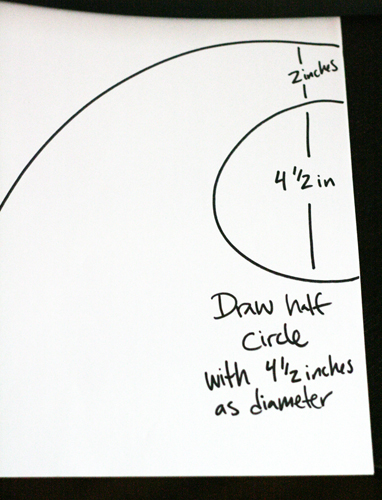 2 inches
4 1/2 in
Draw half
circle
with 4 1/2 inches
as diameter